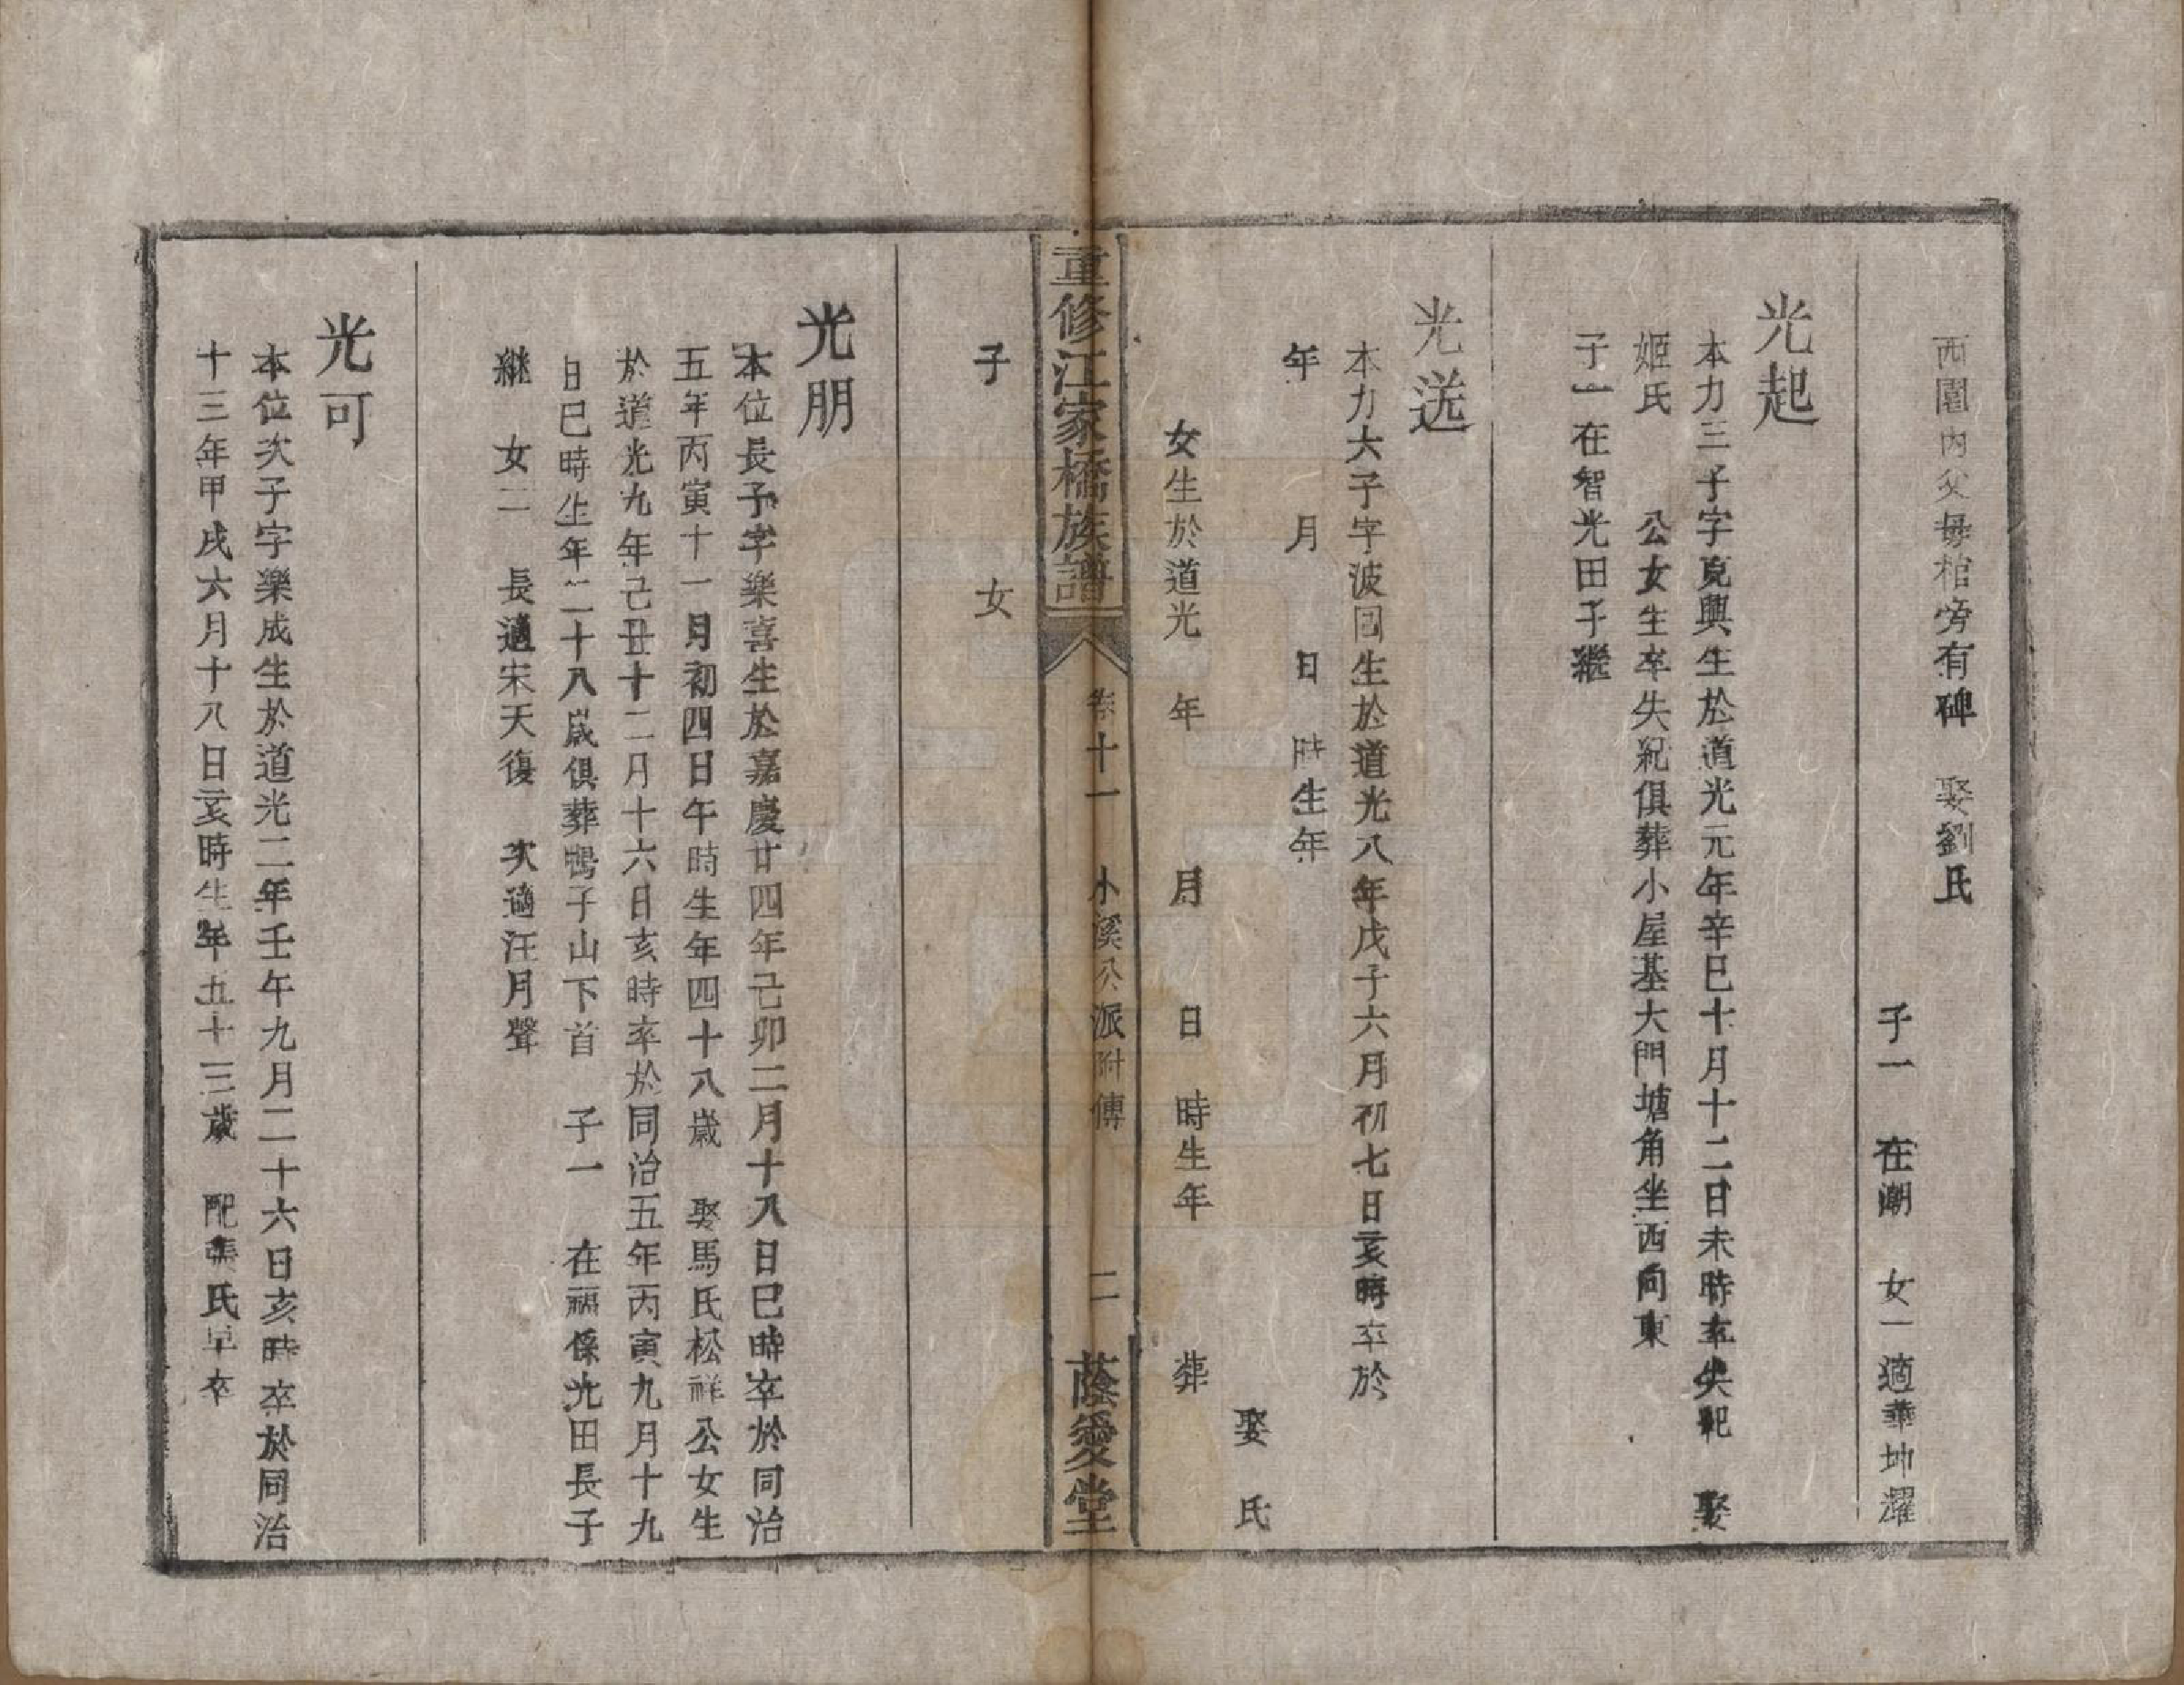 西園內父毋棺旁有碑　娶劉氏
子一　在潮　女一適華坤濯
光起
本力三子字克興生於道光元年辛巳十月十二日未時卒失紀　娶
姬氏　　公女生卒失紀俱葬小屋基大門塘角坐西向東
子一在智光田子繼
光送
本力六子字波回生於道光八年戊子六月初七日亥時卒於
年　　　月　　日　時生年　　　　　　娶　氏
女生於道光　年　　　月　　日　時生年　　　葬
子　　　　女
重修江家橋族譜　卷十一　小溪公派附傳　二　蔭愛堂
光朋
本位長子字樂喜生於嘉慶廿四年己卯二月十八日巳時卒於同治
五年丙寅十一月初四日午時生年四十八歲　娶馬氏松祥公女生
於道光九年己丑十二月十六日亥時卒於同治五年丙寅九月十九
日巳時生年二十八歲俱葬鴨子山下首　子一　在福係光田長子
繼　女二　長適宋天復　次適汪月聲
光可
本位次子字樂成生於道光二年壬午九月二十六日亥時卒於同治
十三年甲戌六月十八日亥時生年五十三歲　配龔氏早卒